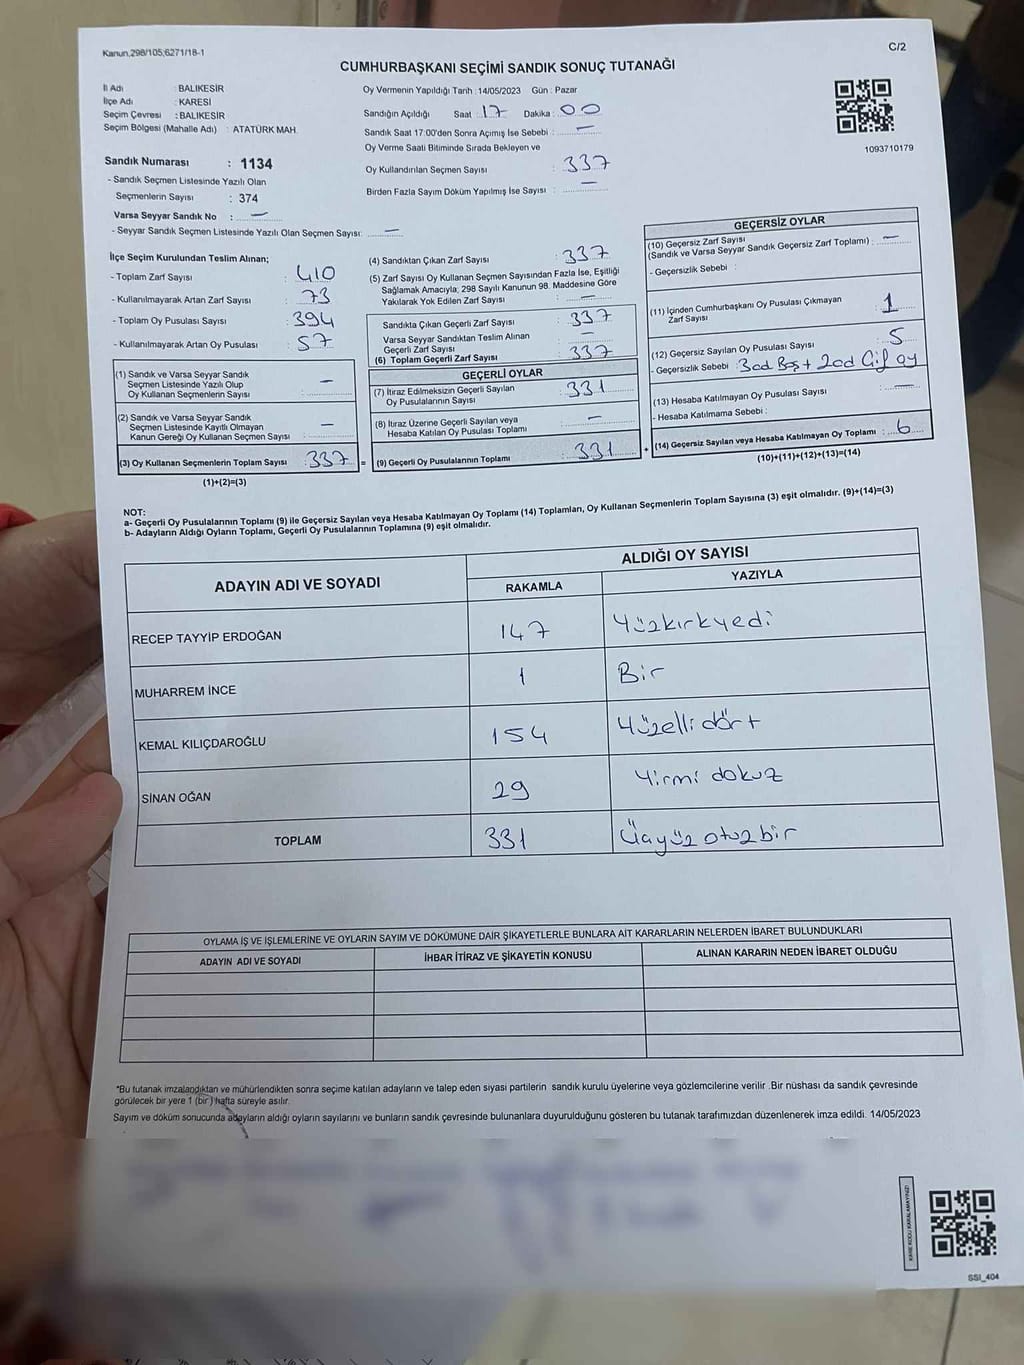 Kanun,298/105,6271/18-1
C/2
CUMHURBAŞKANI SEÇİMİ SANDIK SONUÇ TUTANAĞI
İl Adı : BALIKESİR
İlçe Adı : KARESİ
Seçim Çevresi : BALIKESİR
Seçim Bölgesi (Mahalle Adı) : ATATÜRK MAH.
Sandık Numarası : 1134
- Sandık Seçmen Listesinde Yazılı Olan
Seçmenlerin Sayısı : 374
Varsa Seyyar Sandık No : —
- Seyyar Sandık Seçmen Listesinde Yazılı Olan Seçmen Sayısı: —
Oy Vermenin Yapıldığı Tarih : 14/05/2023 Gün : Pazar
Sandığın Açıldığı Saat : 17 Dakika : 00
Sandık Saat 17:00'den Sonra Açımış İse Sebebi : —
Oy Verme Saati Bitiminde Sırada Bekleyen ve
Oy Kullandırılan Seçmen Sayısı : 337
Birden Fazla Sayım Döküm Yapılmış İse Sayısı : —
1093710179
İlçe Seçim Kurulundan Teslim Alınan;
- Toplam Zarf Sayısı : 410
- Kullanılmayarak Artan Zarf Sayısı : 73
- Toplam Oy Pusulası Sayısı : 394
- Kullanılmayarak Artan Oy Pusulası : 57
(1) Sandık ve Varsa Seyyar Sandık
Seçmen Listesinde Yazılı Olup
Oy Kullanan Seçmenlerin Sayısı : —
(2) Sandık ve Varsa Seyyar Sandık
Seçmen Listesinde Kayıtlı Olmayan
Kanun Gereği Oy Kullanan Seçmen Sayısı : —
(3) Oy Kullanan Seçmenlerin Toplam Sayısı : 337 =
(1)+(2)=(3)
(4) Sandıktan Çıkan Zarf Sayısı : 337
(5) Zarf Sayısı Oy Kullanan Seçmen Sayısından Fazla İse, Eşitliği
Sağlamak Amacıyla; 298 Sayılı Kanunun 98. Maddesine Göre
Yakılarak Yok Edilen Zarf Sayısı : —
Sandıkta Çıkan Geçerli Zarf Sayısı : 337
Varsa Seyyar Sandıktan Teslim Alınan
Geçerli Zarf Sayısı : —
(6) Toplam Geçerli Zarf Sayısı : 337
GEÇERLİ OYLAR
(7) İtiraz Edilmeksizin Geçerli Sayılan
Oy Pusulalarının Sayısı : 331
(8) İtiraz Üzerine Geçerli Sayılan veya
Hesaba Katılan Oy Pusulası Toplamı : —
(9) Geçerli Oy Pusulalarının Toplamı : 331 +
GEÇERSİZ OYLAR
(10) Geçersiz Zarf Sayısı
(Sandık ve Varsa Seyyar Sandık Geçersiz Zarf Toplamı) : —
- Geçersizlik Sebebi :
(11) İçinden Cumhurbaşkanı Oy Pusulası Çıkmayan
Zarf Sayısı : 1
(12) Geçersiz Sayılan Oy Pusulası Sayısı : 5
- Geçersizlik Sebebi : 3ad Boş + 2ad Çift oy
(13) Hesaba Katılmayan Oy Pusulası Sayısı : —
- Hesaba Katılmama Sebebi :
(14) Geçersiz Sayılan veya Hesaba Katılmayan Oy Toplamı : 6
(10)+(11)+(12)+(13)=(14)
NOT:
a- Geçerli Oy Pusulalarının Toplamı (9) ile Geçersiz Sayılan veya Hesaba Katılmayan Oy Toplamı (14) Toplamları, Oy Kullanan Seçmenlerin Toplam Sayısına (3) eşit olmalıdır. (9)+(14)=(3)
b- Adayların Aldığı Oyların Toplamı, Geçerli Oy Pusulalarının Toplamına (9) eşit olmalıdır.
ADAYIN ADI VE SOYADI
ALDIĞI OY SAYISI
RAKAMLA YAZIYLA
RECEP TAYYİP ERDOĞAN 147 Yüzkırkyedi
MUHARREM İNCE 1 Bir
KEMAL KILIÇDAROĞLU 154 Yüzelli dört
SİNAN OĞAN 29 Yirmi dokuz
TOPLAM 331 Üçyüz otuz bir
OYLAMA İŞ VE İŞLEMLERİNE VE OYLARIN SAYIM VE DÖKÜMÜNE DAİR ŞİKAYETLERLE BUNLARA AİT KARARLARIN NELERDEN İBARET BULUNDUKLARI
ADAYIN ADI VE SOYADI İHBAR İTİRAZ VE ŞİKAYETİN KONUSU ALINAN KARARIN NEDEN İBARET OLDUĞU
*Bu tutanak imzalandıktan ve mühürlendikten sonra seçime katılan adayların ve talep eden siyasi partilerin sandık kurulu üyelerine veya gözlemcilerine verilir .Bir nüshası da sandık çevresinde
görülecek bir yere 1 (bir ) hafta süreyle asılır.
Sayım ve döküm sonucunda adayların aldığı oyların sayılarını ve bunların sandık çevresinde bulunanlara duyurulduğunu gösteren bu tutanak tarafımızdan düzenlenerek imza edildi. 14/05/2023
KARE KODU KARALAMAYINIZ!
SSI_404